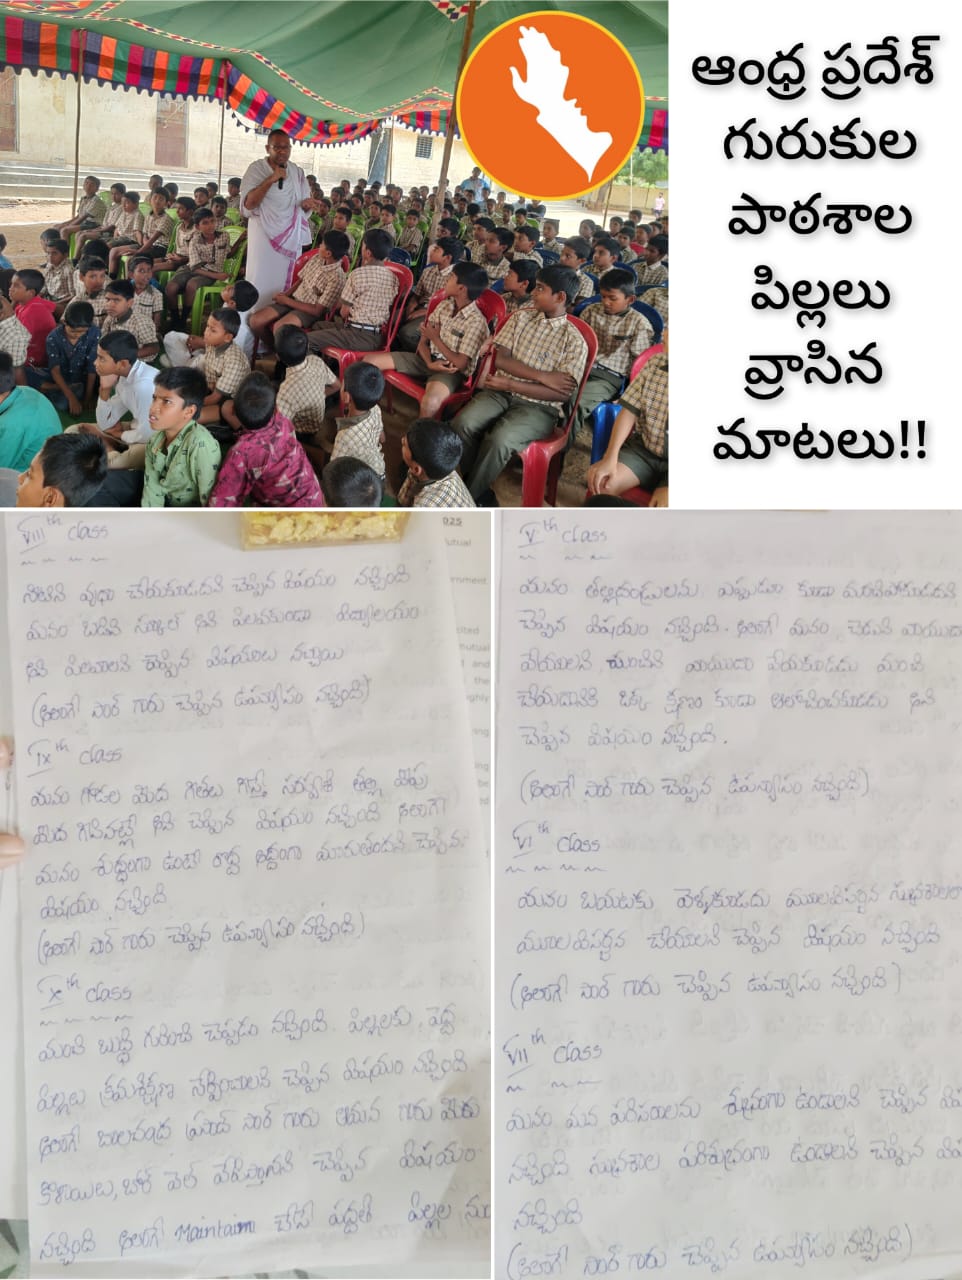 ఆంధ్ర ప్రదేశ్
గురుకుల
పాఠశాల
పిల్లలు
వ్రాసిన
మాటలు!!
VIII th class
నీటిని వృధా చేయకూడదని చెప్పిన విషయం నచ్చింది
మనం బడిని స్కూల్ అని పిలవకుండా విద్యాలయం
అని పిలవాలని చెప్పిన విషయాలు నచ్చాయి
(అలాగే సార్ గారు చెప్పిన ఉపన్యాసం నచ్చింది)
IX th class
మనం గోడల మీద గీతలు గీస్తే సరస్వతి తల్లి వీపు
మీద గీసినట్లే అని చెప్పిన విషయం నచ్చింది అలాగే
మనం శుద్ధంగా ఉంటే రాద్ధ అద్దంగా మారుతుందని చెప్పిన
విషయం నచ్చింది
(అలాగే సార్ గారు చెప్పిన ఉపన్యాసం నచ్చింది)
X th class
మంచి బుద్ధి గురించి చెప్పడం నచ్చింది. పిల్లలకు, పెద్ద
పిల్లలు క్రమశిక్షణ నేర్పించాలని చెప్పిన విషయం నచ్చింది
అలాగే బాలచంద్ర ప్రసాద్ సార్ గారు ఆయన గారు మీరు
కొళాయిలు, బోర్ వెల్ వేపిస్తానని చెప్పిన విషయం
నచ్చింది అలాగే Maintain చేసే పద్ధతి పిల్లల ను
V th class
మనం తల్లిదండ్రులను ఎప్పుడూ కూడా మరచిపోకూడదని
చెప్పిన విషయం నచ్చింది. అలాగే మనం చెడుని వాయిదా
వేయాలని మంచిని వాయిదా వేయకూడదు మంచి
చేయడానికి ఒక్క క్షణం కూడా ఆలోచించకూడదు అని
చెప్పిన విషయం నచ్చింది.
(అలాగే సార్ గారు చెప్పిన ఉపన్యాసం నచ్చింది)
VI th class
మనం బయటకు వెళ్ళకూడదు మూలవిసర్జన
మూలవిసర్జన చేయాలని చెప్పిన విషయం నచ్చింది
(అలాగే సార్ గారు చెప్పిన ఉపన్యాసం నచ్చింది)
VII th class
మనం మన పరిసరాలను శుభ్రంగా ఉండాలని చెప్పిన
నచ్చింది శుభ్రశాల పరిశుభ్రంగా ఉండాలని చెప్పిన
నచ్చింది
(అలాగే సార్ గారు చెప్పిన ఉపన్యాసం నచ్చింది)